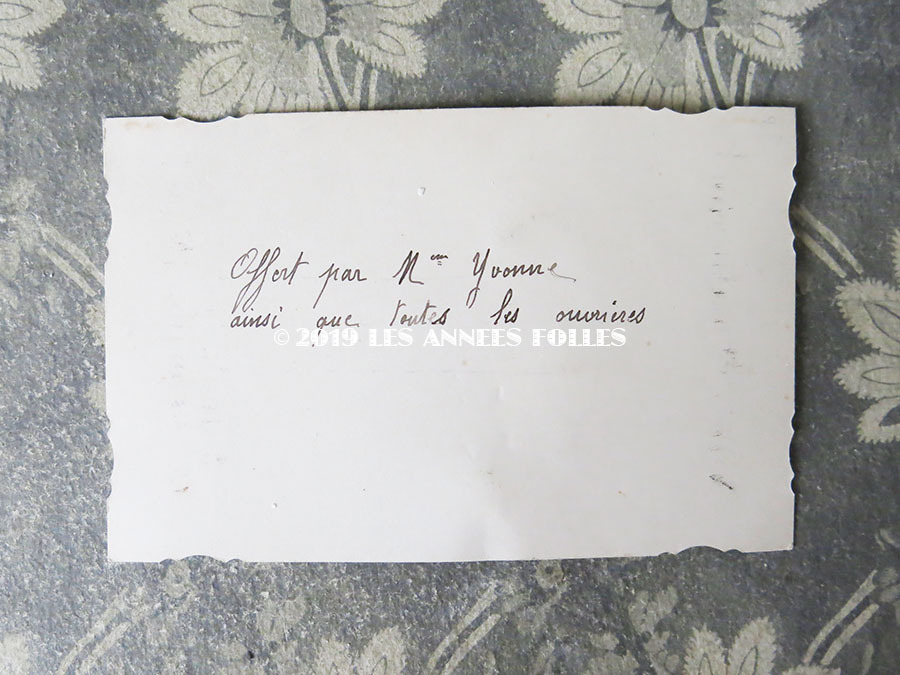 Offert par Mme Yvonne
ainsi que toutes les ouvrières
© 2019 LES ANNEES FOLLES